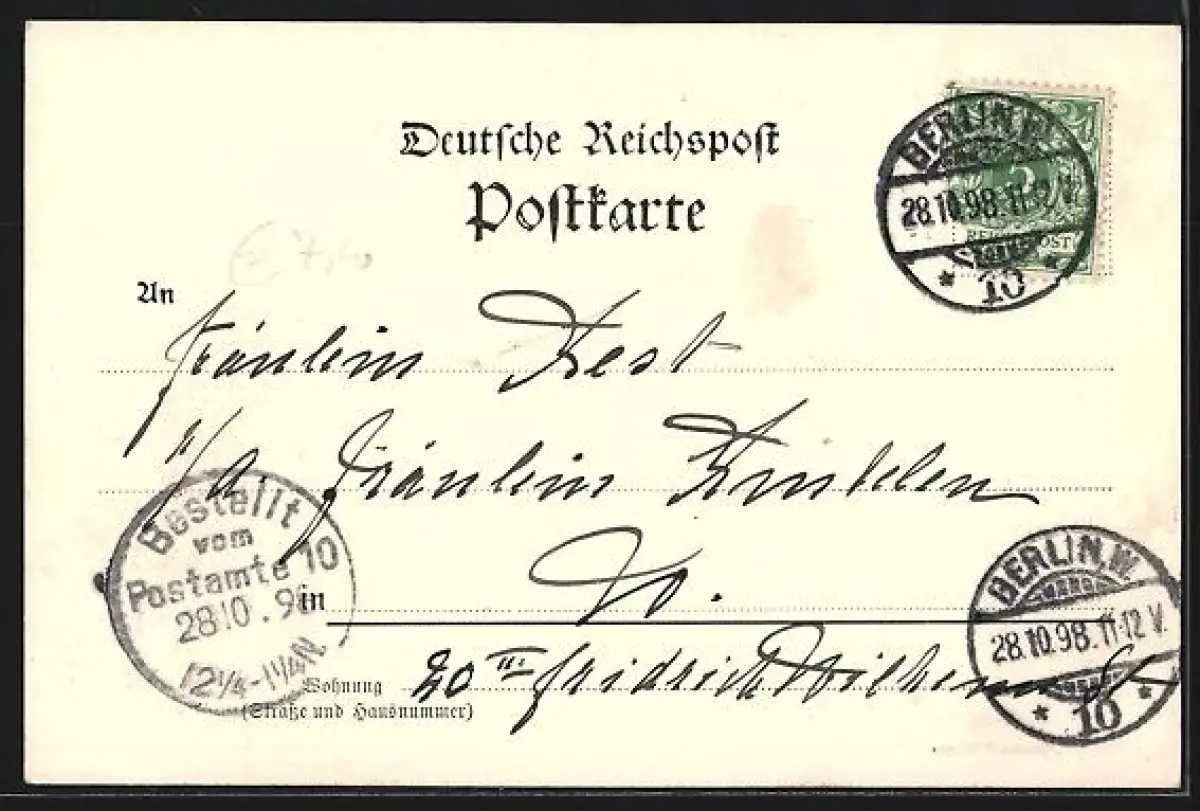 Deutsche Reichspost
Postkarte
BERLIN, W.
28.10.98.11-12 V.
* 10 *
5
REICHSPOST
An
Fräulein Rest
p/a. Fräulein
W.
in
20 III Friedrich Wilhelm St
Wohnung
(Straße und Hausnummer)
Bestellt
vom
Postamte 10
28.10.98
12¼-1¼N
BERLIN, W.
28.10.98.11-12 V.
* 10 *